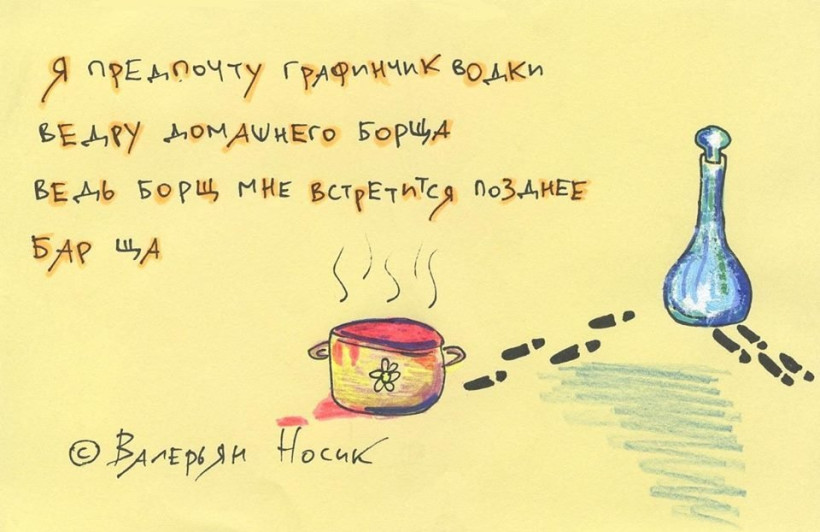 Я ПРЕДПОЧТУ ГРАФИНЧИК ВОДКИ
ВЕДРУ ДОМАШНЕГО БОРЩА
ВЕДЬ БОРЩ МНЕ ВСТРЕТИТСЯ ПОЗДНЕЕ
БАР ЩА
© Валерьян Носик